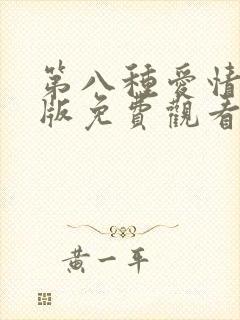 第八種愛情
版免費觀看
黃一平